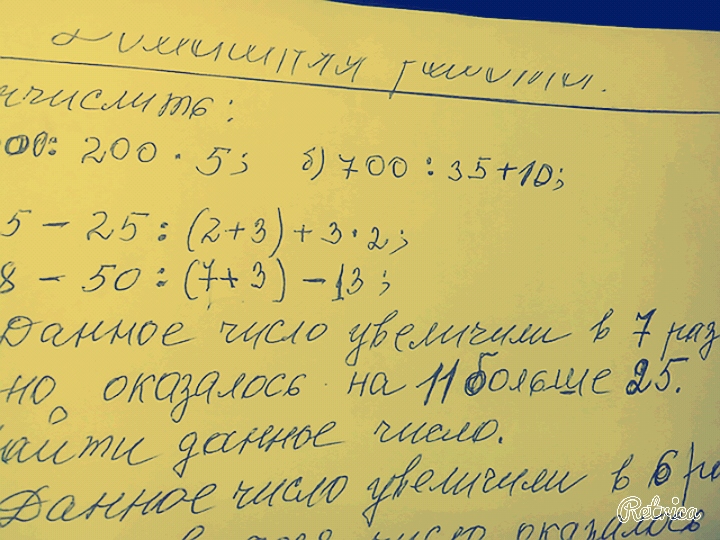 числить:
00: 200 · 5; б) 700 : 35 + 10;
5 - 25 : (2+3) + 3 · 2;
8 - 50 : (7+3) - 13;
Данное число увеличили в 7 раз
но оказалось на 11 больше 25.
айти данное число.
Данное число увеличили в 6 ра
число оказалось
Retrica